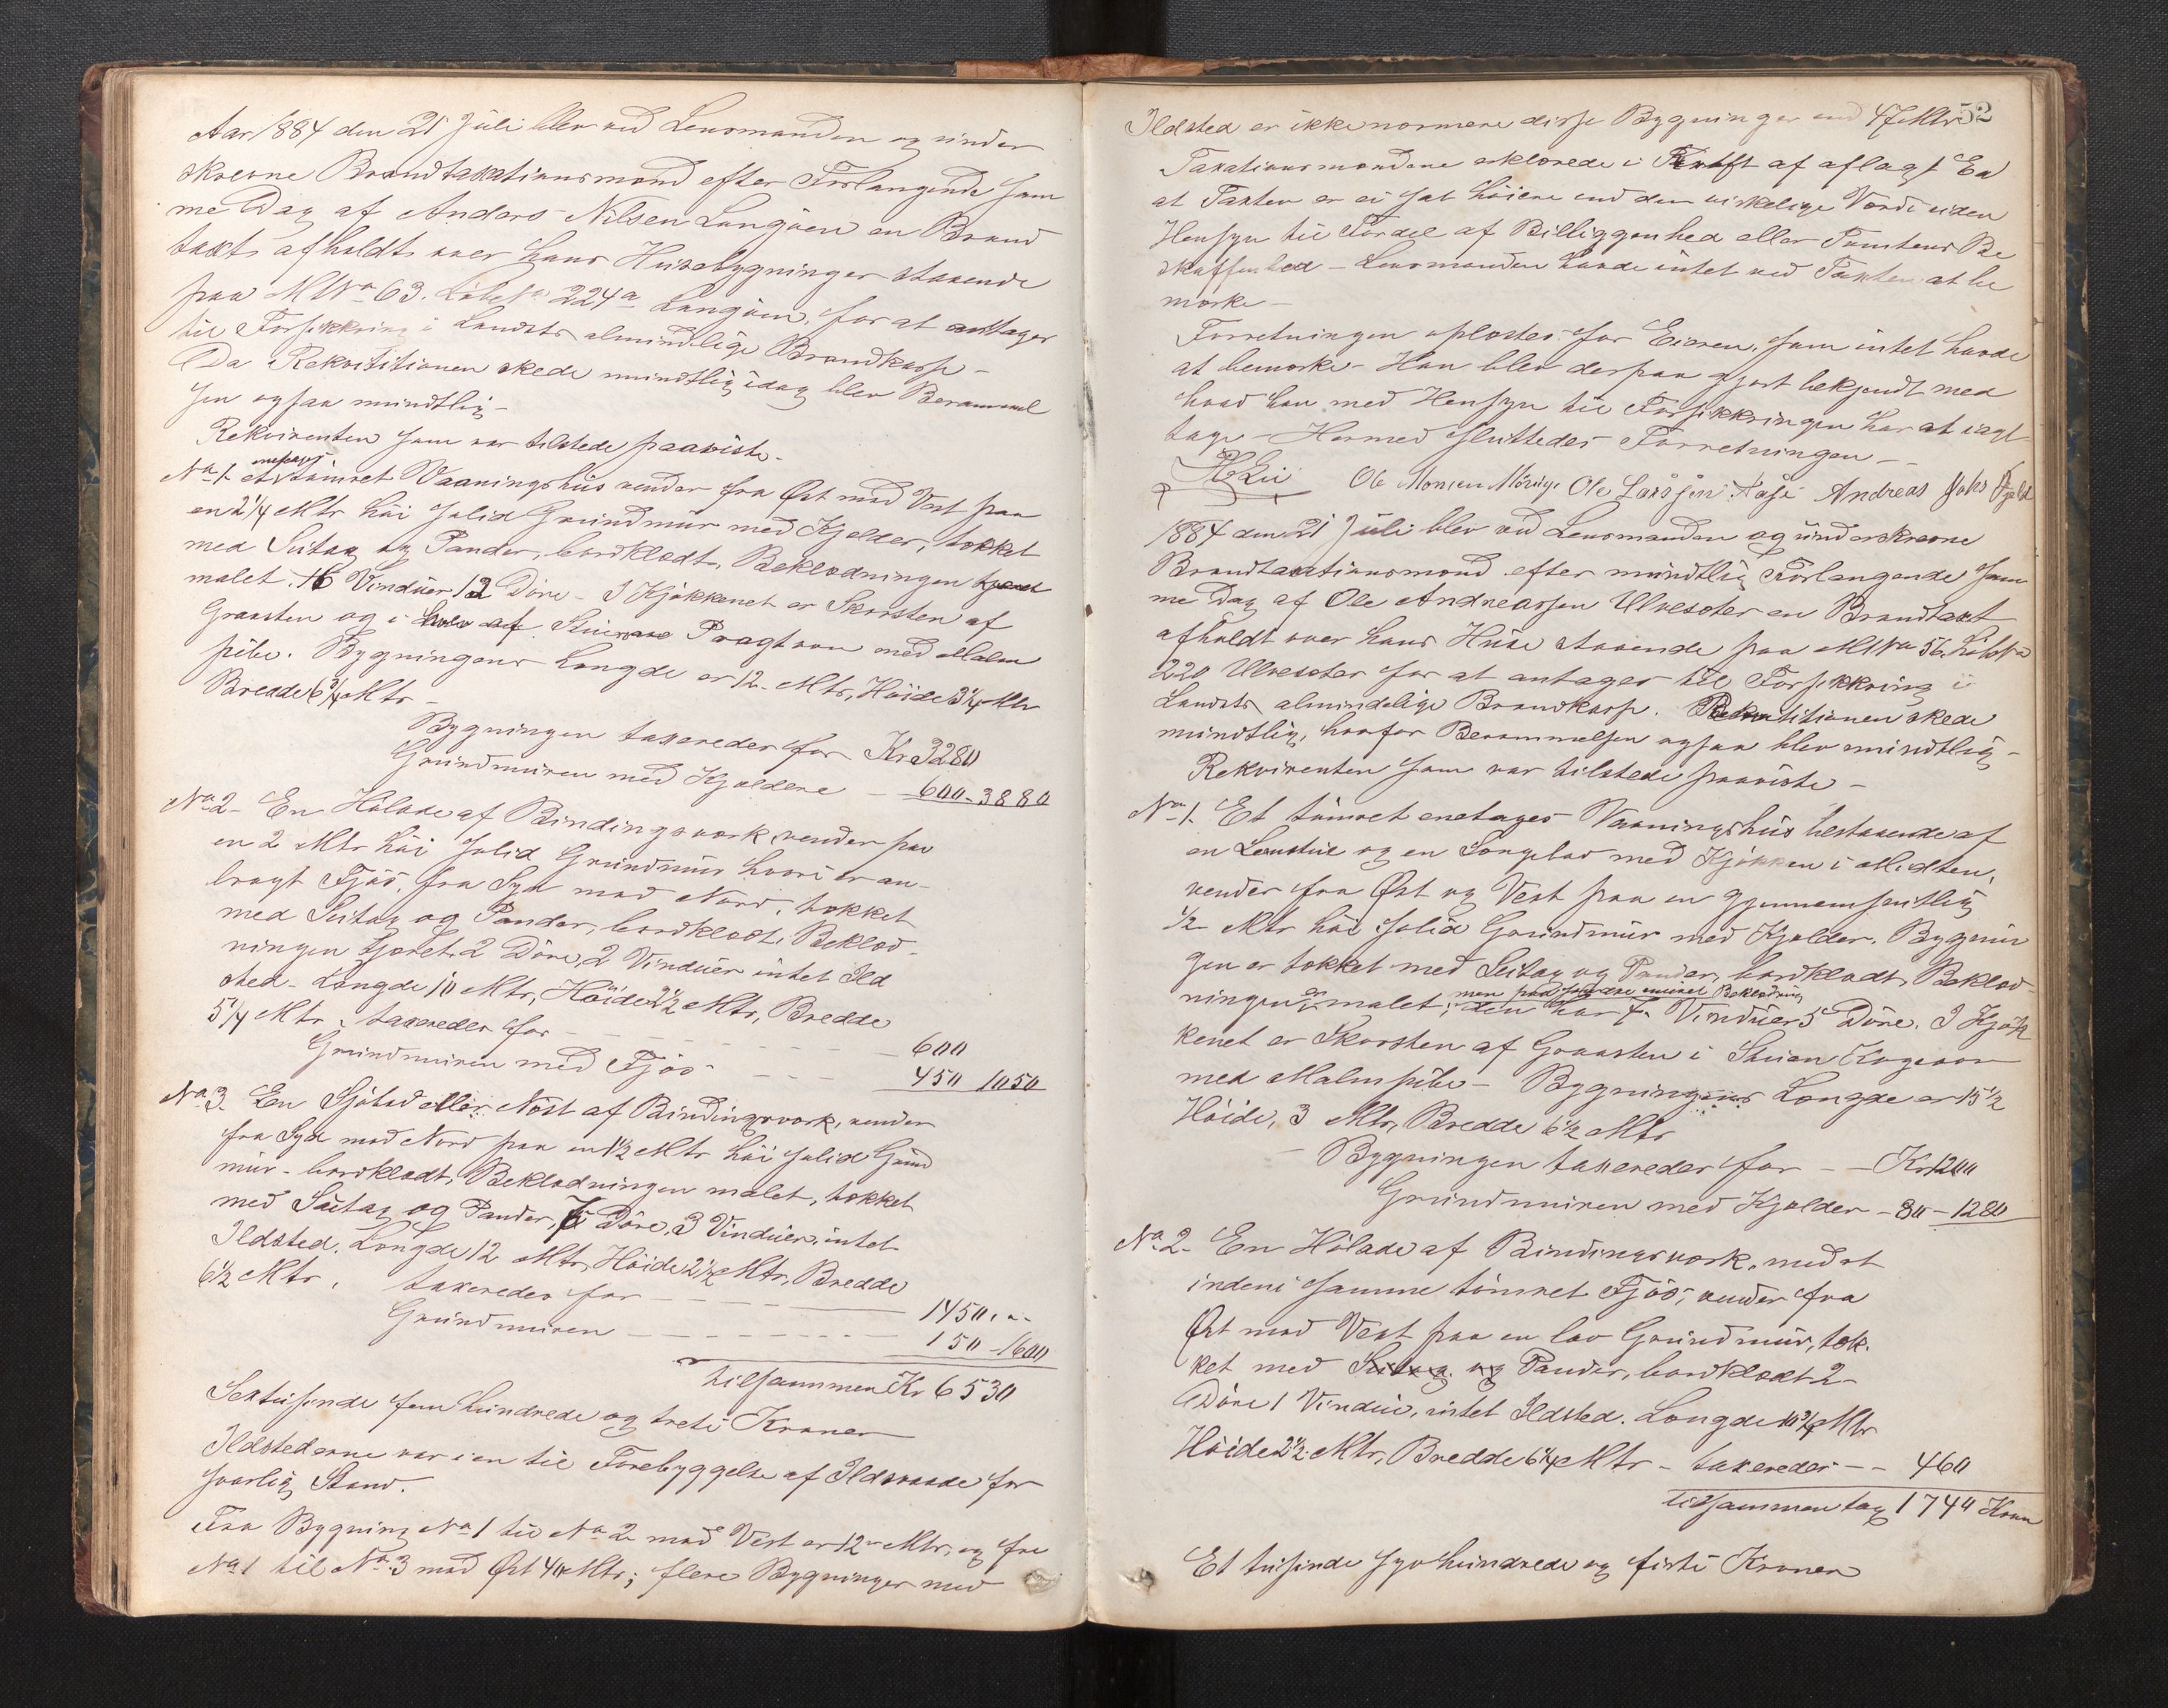 Aar 1884 den 21 Juli blev ved Lensmanden og under
skrevne Brandtaxationsmænd efter Forlangende sam
me Dag af Anders Nilsen Langøen en Brand
taxt afholdt over hans Husebygninger staaende
paa MNo 63. Løbe No 224a Langøen, for at antages
til Forsikkring i Landets almindelige Brandkasse -
Da Rekvisitionen skede mundtlig idag blev Berammel
sen ogsaa mundtlig -
Rekvirenten som var tilstede paaviste -
No 1. et enetages tømret Vaaningshus vender fra Øst mod Vest paa
en 2 1/4 Mtr høi solid Grundmur med Kjelder, tækket
med Sutag og Pander, bordklædt, Beklædningen
malet. 16 Vinduer 12 Døre - I Kjøkkenet er Skorsten af
Graasten og i Pragtovn med Malm
pibe. Bygningens Længde er 12 Mtr, Høide 3 1/4 Mtr
Bredde 6 3/4 Mtr -
Bygningen taxeredes for Kr 3280
Grundmuren med Kjeldere - 600 - 3880
No 2 - En Hølade af Bindingsværk, vender paa
en 2 Mtr høi solid Grundmur hvori er an-
bragt Fjøs, fra Syd mod Nord, tækket
med Sutag og Pander, bordklædt, Beklæd-
ningen tjæret, 2 Døre, 2 Vinduer intet Ild
sted - Længde 10 Mtr, Høide 2 1/2 Mtr, Bredde
5 1/4 Mtr, taxeredes for - - - 600
Grundmuren med Fjøs - - - 450 1050
No 3. En Sjøbod eller Nøst af Bindingsværk, vender
fra Syd mod Nord paa en 1 1/2 Mtr høi solid Grund
mur - bordklædt, Beklædningen malet, tækket
med Sutag og Pander, Døre, 3 Vinduer, intet
Ildsted. Længde 12 Mtr, Høide 2 1/2 Mtr, Bredde
6 1/2 Mtr, taxeredes for - - - 1450 ,,
Grundmuren - - - 150 - 1600
tilsammen Kr 6530
Sextusinde fem hundrede og treti Kroner
Ildstederne var i en til Forebyggelse af Ildsvaade for
svarlig Stand.
Fra Bygning No 1 til No 2 mod Vest er 12 Mtr, og fra
No 1 til No 3 mod Øst 40 Mtr; flere Bygninger med
52
Ildsted er ikke nærmere disse Bygninger end 47 Mtr
Taxationsmændene erklærede i Kraft af aflagt Ed
at Taxten er ei sat høiere end den virkelige Værdi uden
Hensyn til Fordel af Beliggenhed eller Tomtens Be
skaffenhed - Lensmanden havde intet ved Taxten at be
mærke -
Forretningen oplæstes for Eieren, som intet havde
at bemærke - Han blev derpaa gjort bekjendt med
hvad han med Hensyn til Forsikkringen har at iagt
tage - Hermed sluttedes Forretningen -
Ole Monsen Ole Larssen Andreas Johs
1884 den 21 Juli blev ved Lensmanden og underskrevne
Brandtaxtionsmænd efter mundtlig Forlangende sam
me Dag af Ole Andreassen Ulvesæter en Brandtaxt
afholdt over hans Huse staaende paa MNo 56. Løb No
220 Ulvesæter for at antages til Forsikkring i
Landets almindelige Brandkasse. Rekvisitionen skede
mundtlig, hvorfor Berammelsen ogsaa blev mundtlig -
Rekvirenten som var tilstede paaviste -
No 1. Et tømret enetages Vaaningshus bestaaende af
en Lemstue og en Sengebod med Kjøkken i Midten,
vender fra Øst og Vest paa en gjennemsnitlig
1/2 Mtr høi solid Grundmur med Kjelder. Bygnin
gen er tækket med Sutag og Pander, bordklædt, Beklæd-
ningen er malet, men paa søndre Beklædning
den har 7 Vinduer 5 Døre. I Kjøk
kenet er Skorsten af Graasten i Stuen Kogeovn
med Malmpibe - Bygningens Længde er 15 1/2
Høide, 3 Mtr, Bredde 6 1/2 Mtr
- Bygningen taxeredes for - - Kr 1200
Grundmuren med Kjelder - 80 - 1280
No 2 - En Hølade af Bindingsværk, med et
indeni samme tømret Fjøs, vender fra
Øst mod Vest paa en lav Grundmur, tæk-
ket med Sutag og Pander, bordklædt 2
Døre 1 Vindue, intet Ildsted. Længde 10 3/4 Mtr
Høide 2 1/2 Mtr, Bredde 6 1/4 Mtr - taxeredes - - 460
tilsammentag 1740 Kron
Et tusinde syvhundrede og firti Kroner